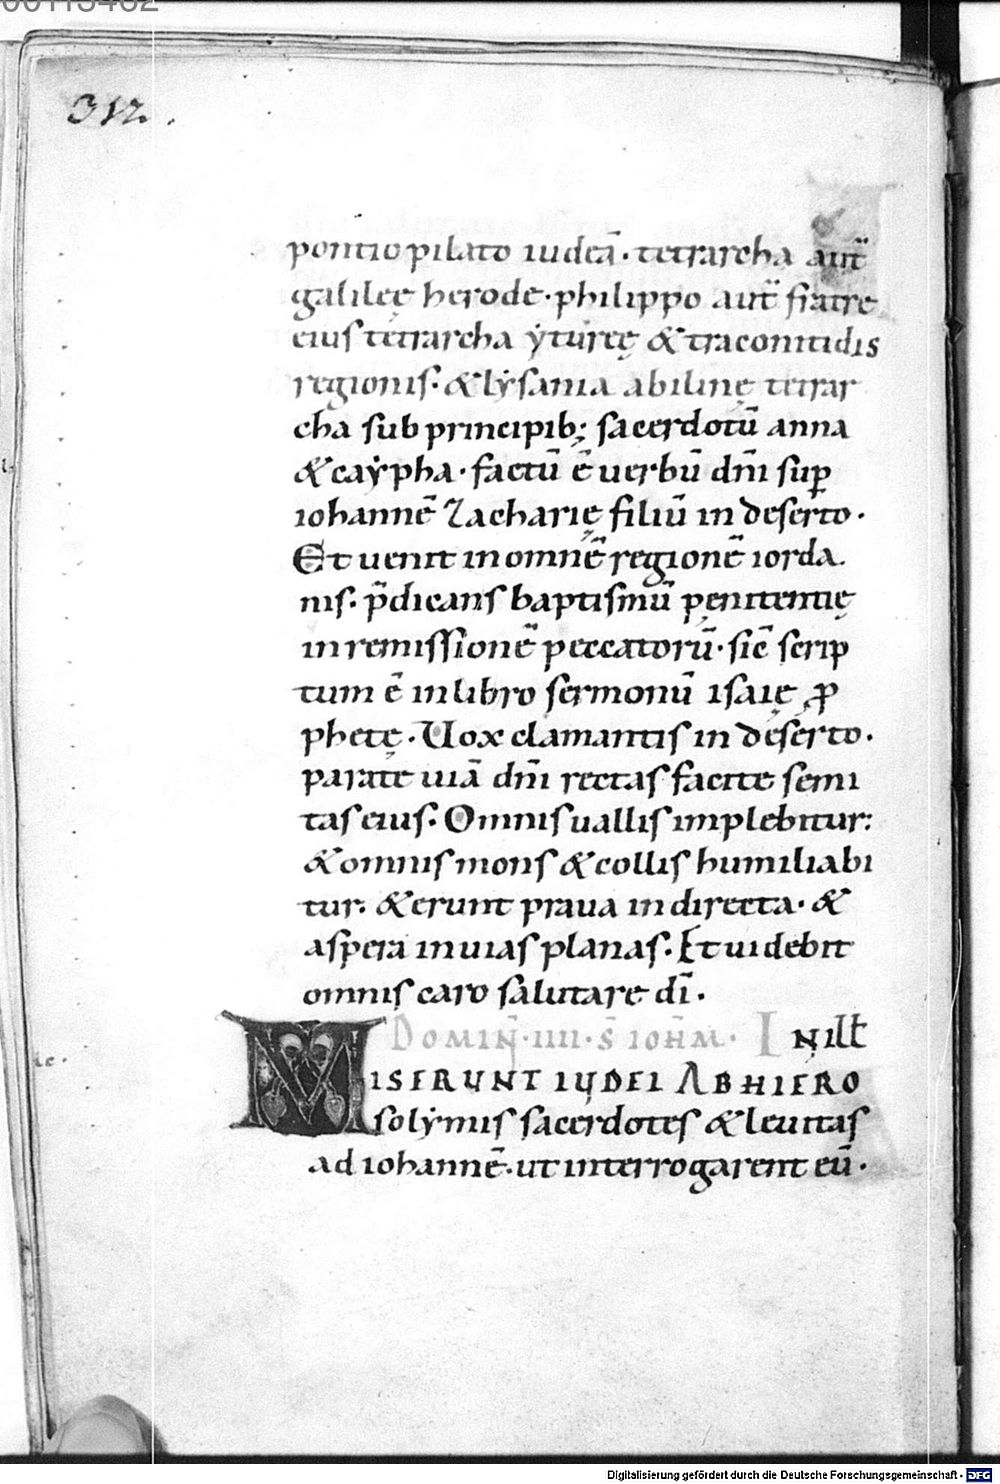 00113462
312.
pontio pilato iudeã · tetrarcha aut̃
galileę herode · philippo aut̃ fratre
eius tetrarcha ẏtureę & traconitidis
regionis · & lẏsania abilinę tetrar
cha sub principib; sacerdotũ anna
& caẏpha · factũ ẽ uerbũ dñi sup̱
iohannẽ Zacharię filiũ in deserto ·
Et uenit in omnẽ regionẽ iorda
nis · p̃dicans baptismũ pęnitentię
in remissionẽ peccatorũ · sic̃ scrip
tum ẽ in libro sermonũ isaię ꝓ
phetę · Uox clamantis in deserto ·
parate uiã dñi rectas facite semi
tas eius · Omnis uallis implebitur:
& omnis mons & collis humiliabi
tur · & erunt praua in directa · &
aspera in uias planas · Et uidebit
omnis caro salutare dĩ ·
DOMIÑ · IIII · S̃ IOHÑM · IN ILL̃
MISERUNT IUDEI AB HIERO
solẏmis sacerdotes & leuitas
ad iohannẽ · ut interrogarent eũ ·
Digitalisierung gefördert durch die Deutsche Forschungsgemeinschaft - DFG